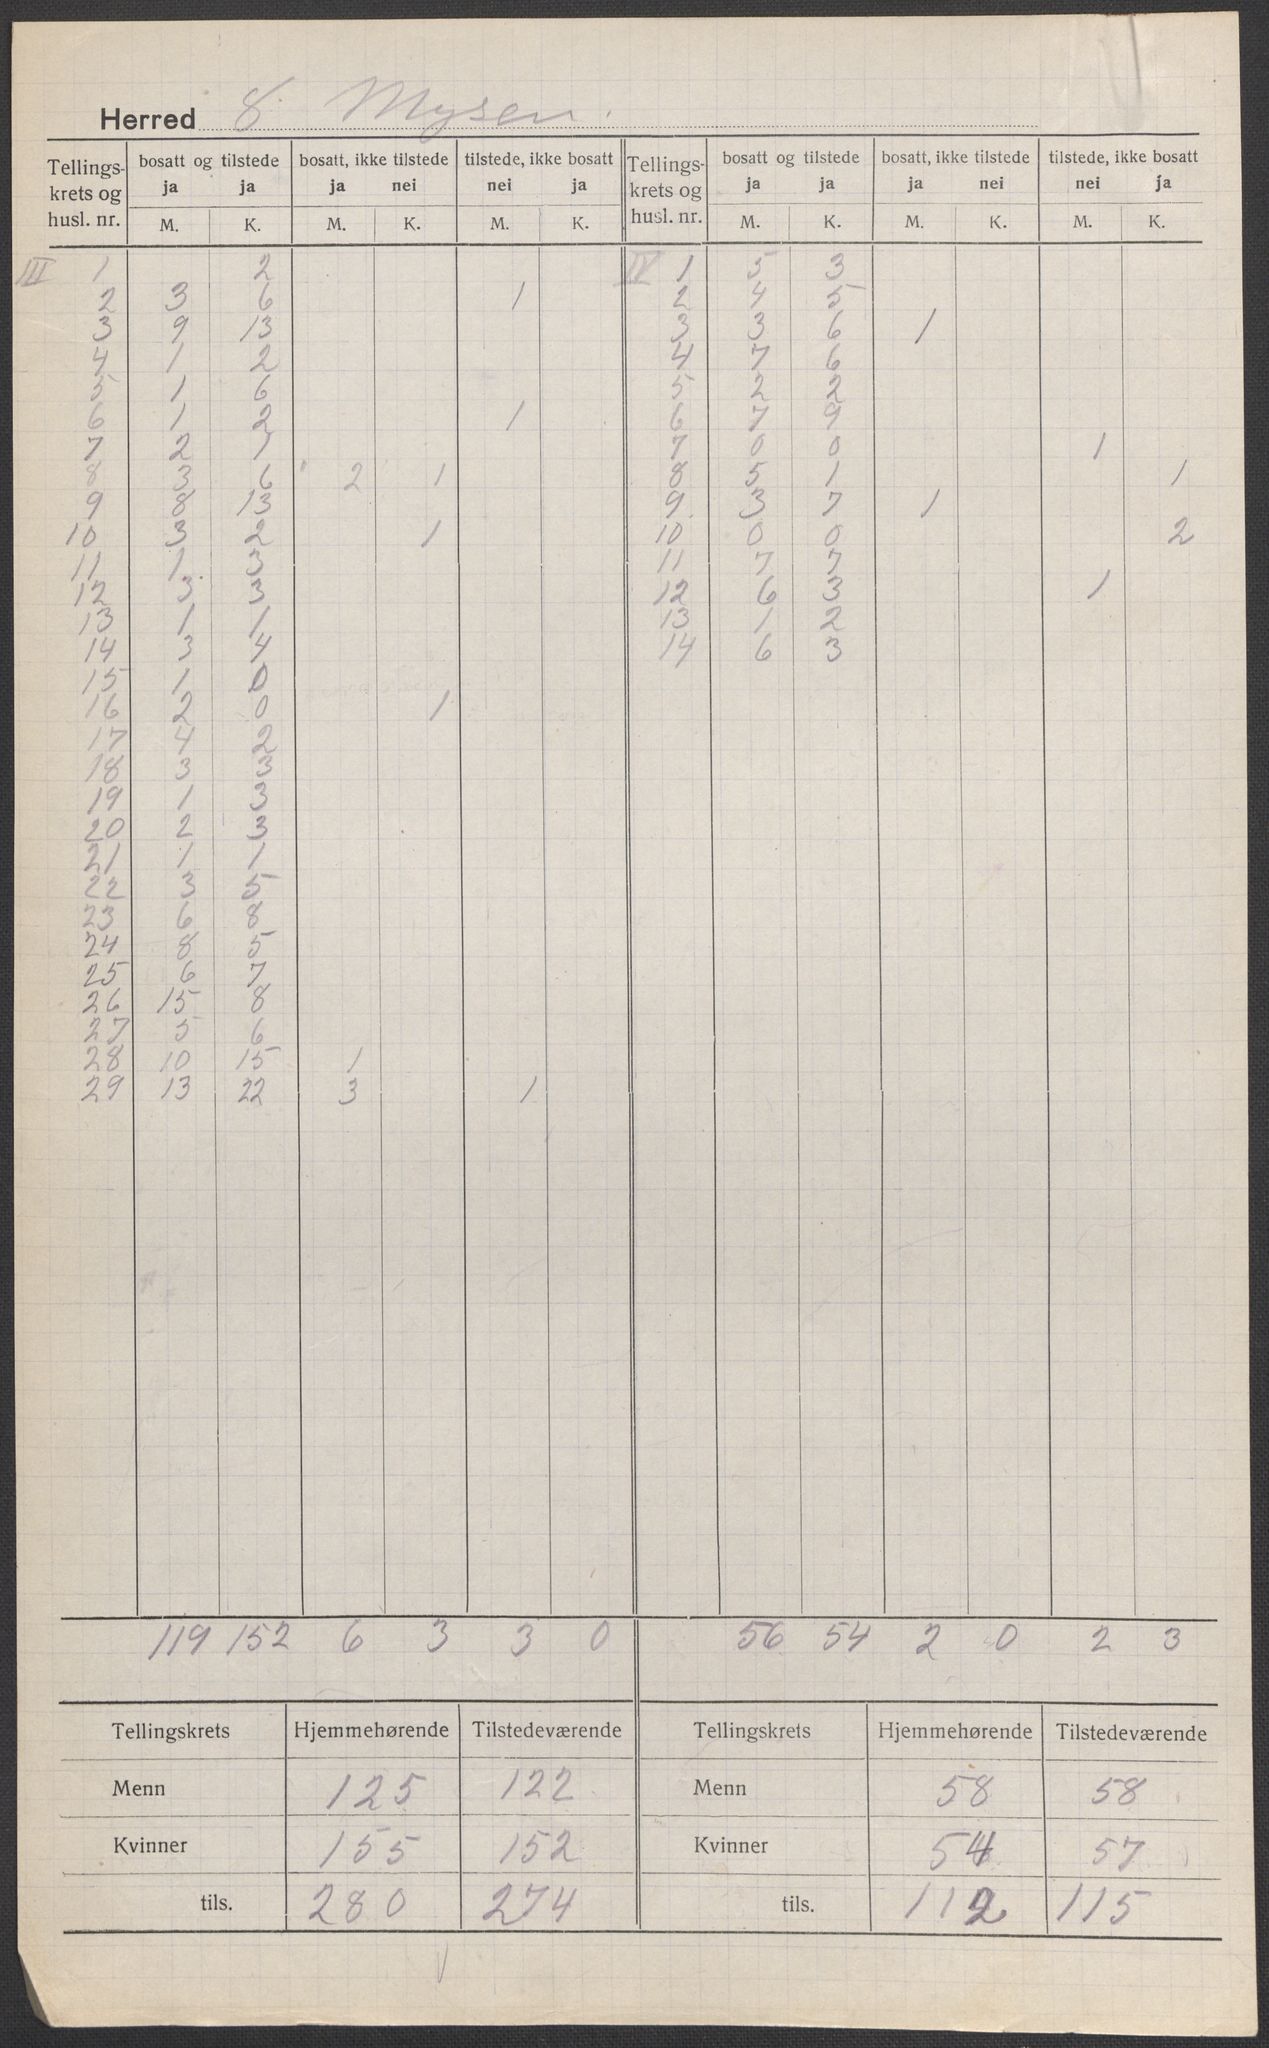 Herred 8. Mysen.
Tellings-krets og husl. nr. | bosatt og tilstede ja M. | ja K. | bosatt, ikke tilstede ja M. | nei K. | tilstede, ikke bosatt nei M. | ja K. | Tellings-krets og husl. nr. | bosatt og tilstede ja M. | ja K. | bosatt, ikke tilstede ja M. | nei K. | tilstede, ikke bosatt nei M. | ja K.
III 1 | | 2 | | | | | IV 1 | 5 | 3 | | | |
2 | 3 | 6 | | | 1 | | 2 | 4 | 5 | | | |
3 | 9 | 13 | | | | | 3 | 3 | 6 | 1 | | |
4 | 1 | 2 | | | | | 4 | 7 | 6 | | | |
5 | 1 | 6 | | | | | 5 | 2 | 2 | | | |
6 | 1 | 2 | | | 1 | | 6 | 7 | 9 | | | |
7 | 2 | 1 | | | | | 7 | 0 | 0 | | | 1 |
8 | 3 | 6 | 2 | 1 | | | 8 | 5 | 1 | | | | 1
9 | 8 | 13 | | | | | 9 | 3 | 7 | 1 | | |
10 | 3 | 2 | | 1 | | | 10 | 0 | 0 | | | | 2
11 | 1 | 3 | | | | | 11 | 7 | 7 | | | |
12 | 3 | 3 | | | | | 12 | 6 | 3 | | | 1 |
13 | 1 | 1 | | | | | 13 | 1 | 2 | | | |
14 | 3 | 4 | | | | | 14 | 6 | 3 | | | |
15 | 1 | 0
16 | 2 | 0 | | 1
17 | 4 | 2
18 | 3 | 3
19 | 1 | 3
20 | 2 | 3
21 | 1 | 1
22 | 3 | 5
23 | 6 | 8
24 | 8 | 5
25 | 6 | 7
26 | 15 | 8
27 | 5 | 6
28 | 10 | 15 | 1
29 | 13 | 22 | 3 | | 1
119 | 152 | 6 | 3 | 3 | 0 | | 56 | 54 | 2 | 0 | 2 | 3
Tellingskrets | Hjemmehørende | Tilstedeværende | Tellingskrets | Hjemmehørende | Tilstedeværende
Menn | 125 | 122 | Menn | 58 | 58
Kvinner | 155 | 152 | Kvinner | 54 | 57
tils. | 280 | 274 | tils. | 112 | 115